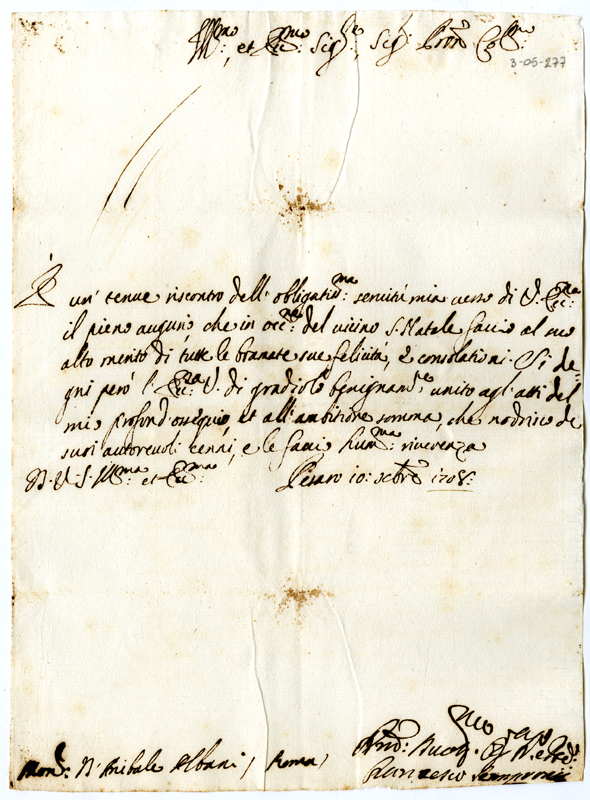 Ill.mo, et Ecc.mo Sig.re, Sig. Pron. Col.mo
3-05-277
È un' tenue riscontro dell' obligatis.ma servitù mia verso di V. Ecc.za
il pieno augurio, che in occ.ne del vicino S. Natale faccio al suo
alto merito di tutte le bramate sue felicità, e consolationi. Si de-
gni però l' Ecc.za V. di gradirlo benignam.te unito agl' atti del
mio profond' ossequio, et all' ambitione somma, che nodrisco de
suoi autorevoli cenni, e le faccio hum.ma riverenza
D. V. S. Ill.ma et Ecc.ma Pesaro 10: Xbre 1708:
Mons: D' Anibale Albani, Roma,
Francesco